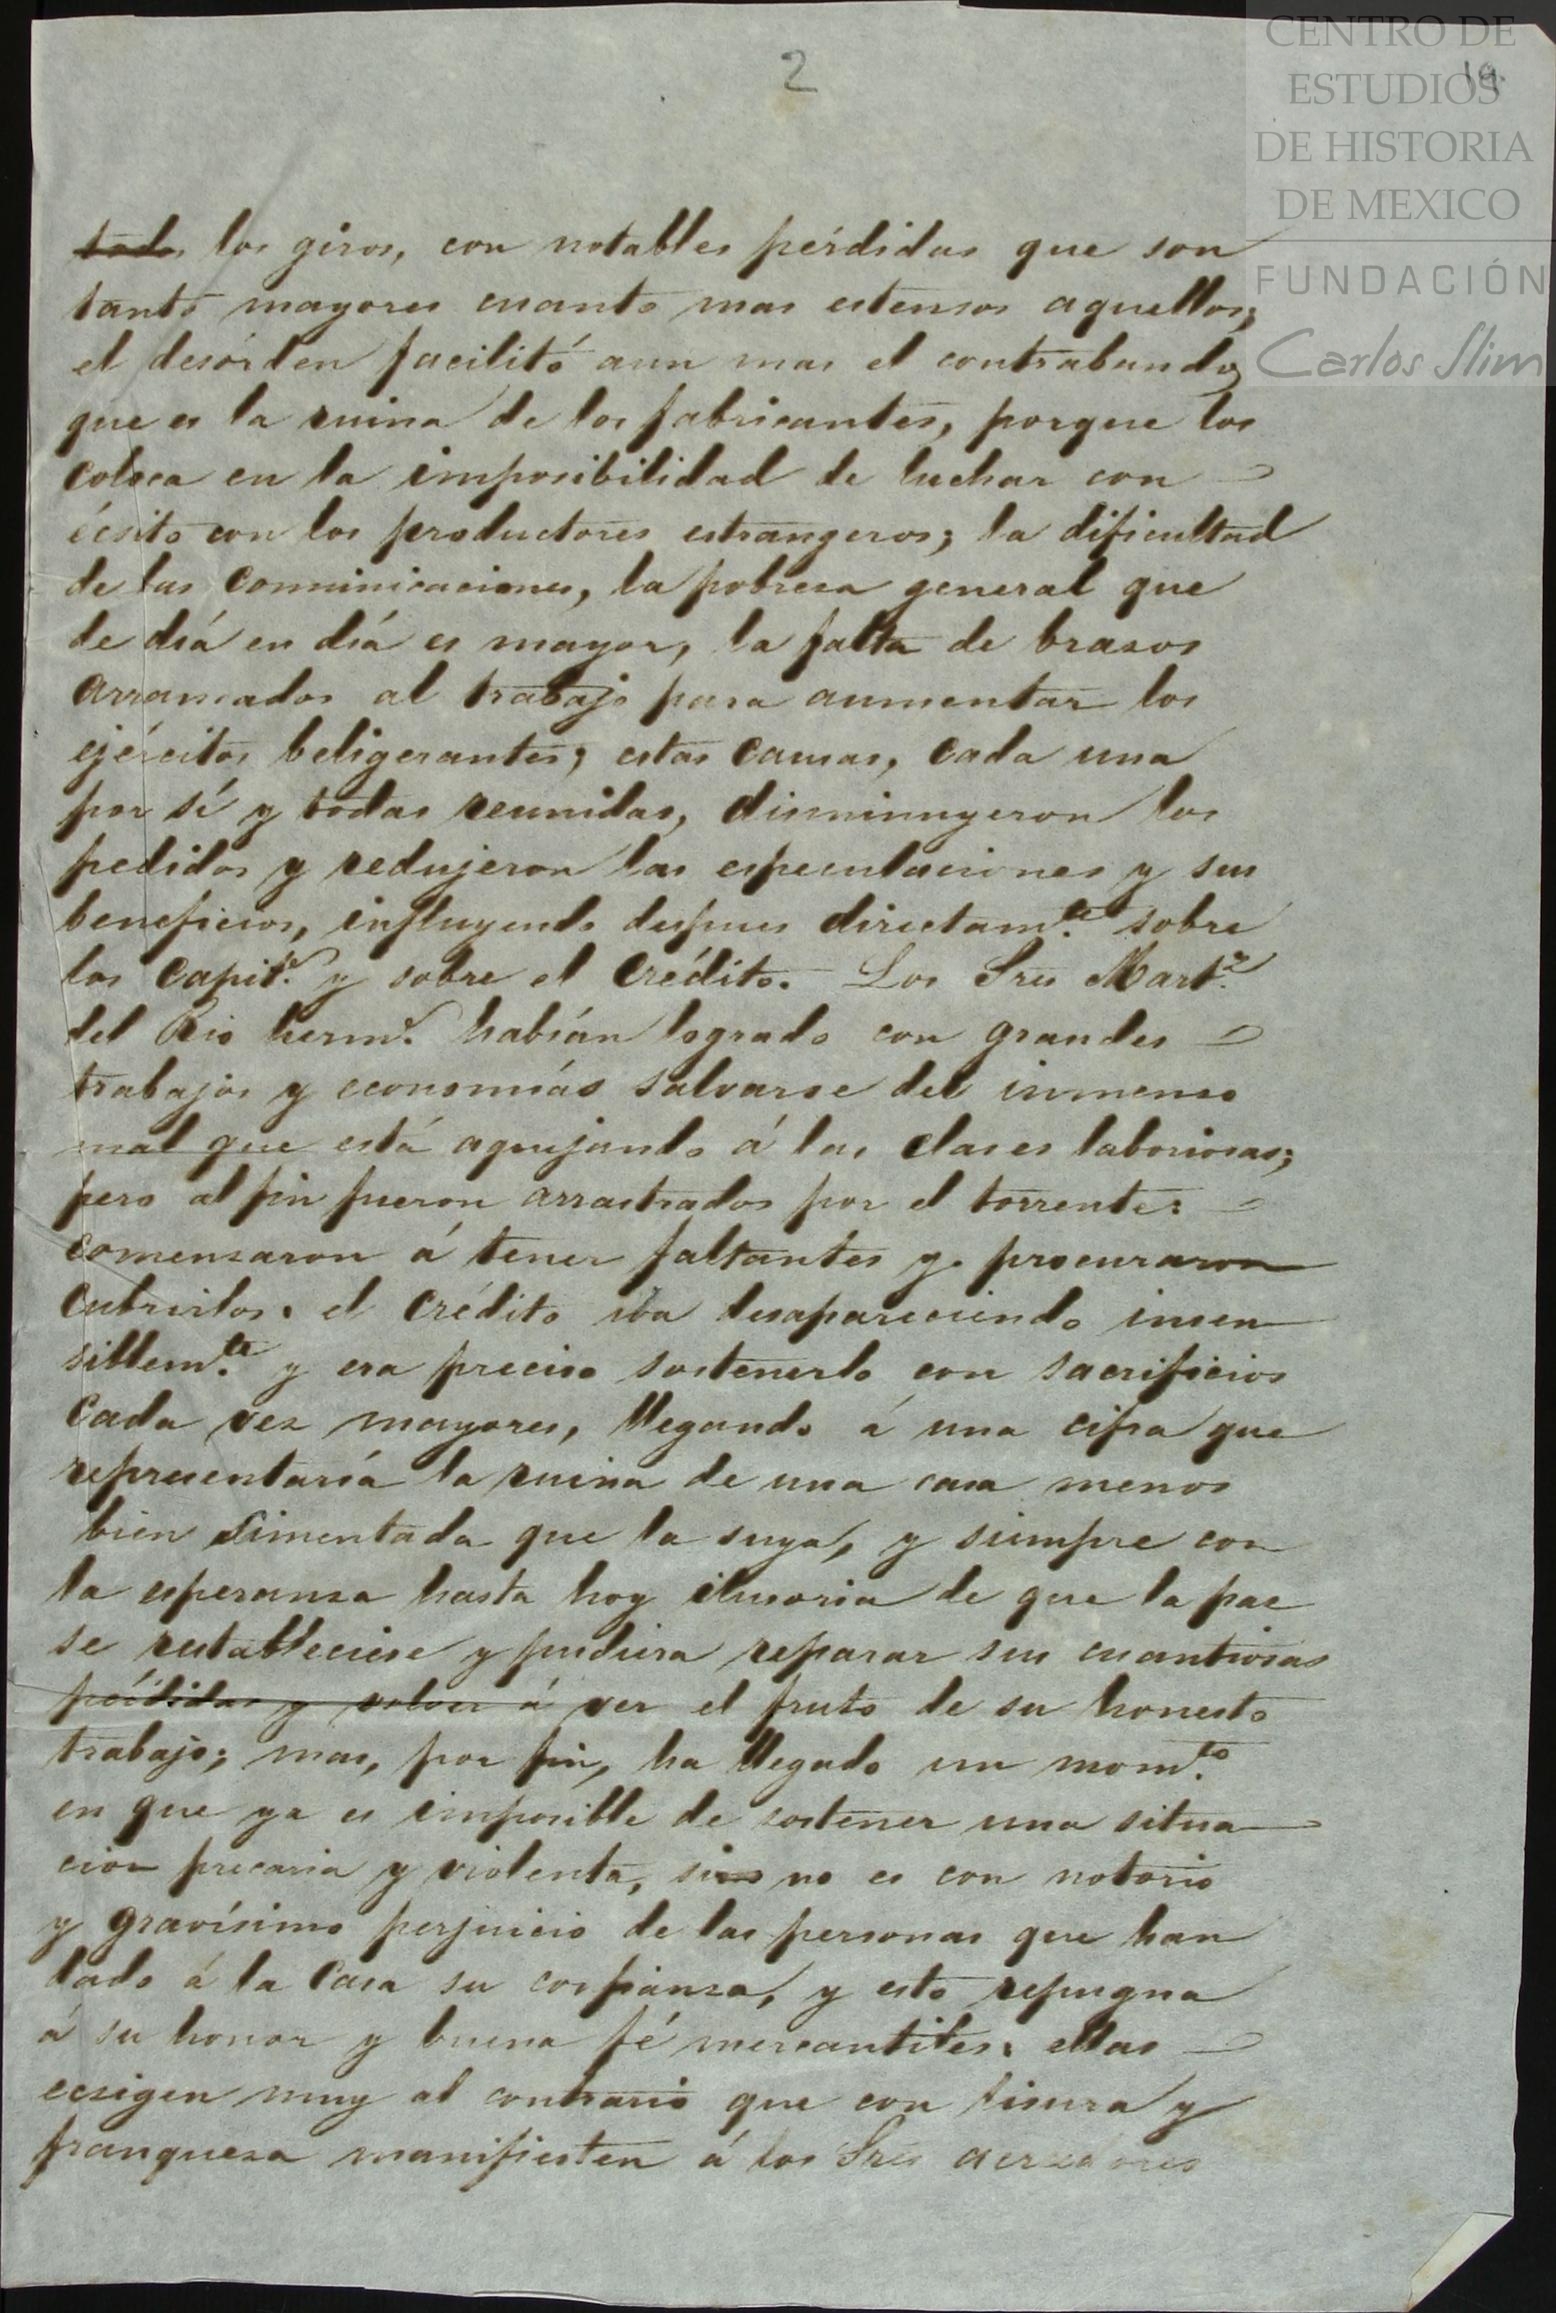 2
19.
CENTRO DE
ESTUDIOS
DE HISTORIA
DE MEXICO
FUNDACIÓN
Carlos Slim
todos los giros, con notables pérdidas que son
tanto mayores cuanto mas estensos aquellos;
el desórden facilitó aun mas el contrabando,
que es la ruina de los fabricantes, porque los
coloca en la imposibilidad de luchar con
écsito con los productores estrangeros; la dificultad
de las comunicaciones, la pobresa general que
de diá en diá es mayor, la falta de brasos
arrancados al trabajo para aumentar los
ejércitos beligerantes; estas causas, cada una
por sí y todas reunidas, disminuyeron los
pedidos y redujeron las especulaciones y sus
beneficios, influyendo despues directam.te sobre
los Capit.s y sobre el Crédito. Los Sres Mart.z
del Rio herm.s habían logrado con grandes
trabajos y economiás salvarse del inmenso
mal que está aquejando á las clases laboriosas;
pero al fin fueron arrastrados por el torrente:
comensaron á tener faltantes y procuraron
cubrirlos. el Crédito iba desapareciendo insen
siblem.te y era preciso sostenerlo con sacrificios
Cada vez mayores, llegando á una cifra que
representaría la ruina de una casa menos
bien simentada que la suya, y siempre con
la esperansa hasta hoy ilusoria de que la paz
se restableciese y pudiera reparar sus cuantiosas
pérdidas y volver á ver el fruto de su honesto
trabajo; mas, por fin, ha llegado un mom.to
en que ya es imposible de sostener una situa
cion precaria y violenta, sino no es con notorio
y gravísimo perjuicio de las personas que han
dado á la Casa su confiansa, y esto repugna
á su honor y buena fé mercantiles: ellas
ecsigen muy al contrario que con lisura y
franquesa manifiesten á los Sres acreedores